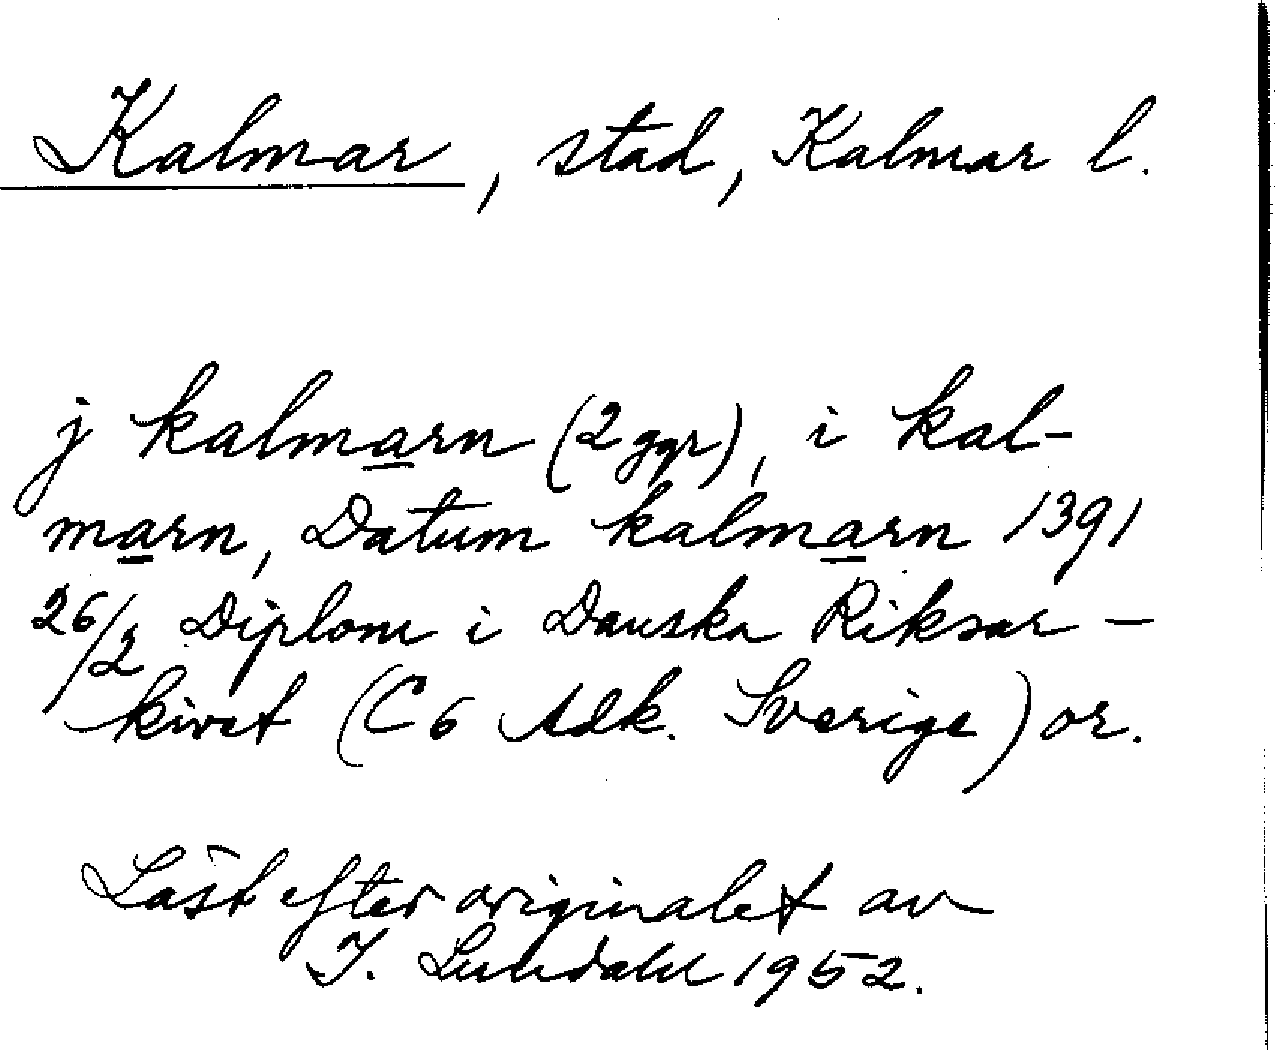 Kalmar, stad, Kalmar l.
j kalmarn (2 ggr), i kal-
marn, Datum kalmarn 1391
26/2 Diplom i Danska Riksar-
kivet (C6 Adk. Sverige) or.
Läst efter originalet av
I. Lundahl 1952.